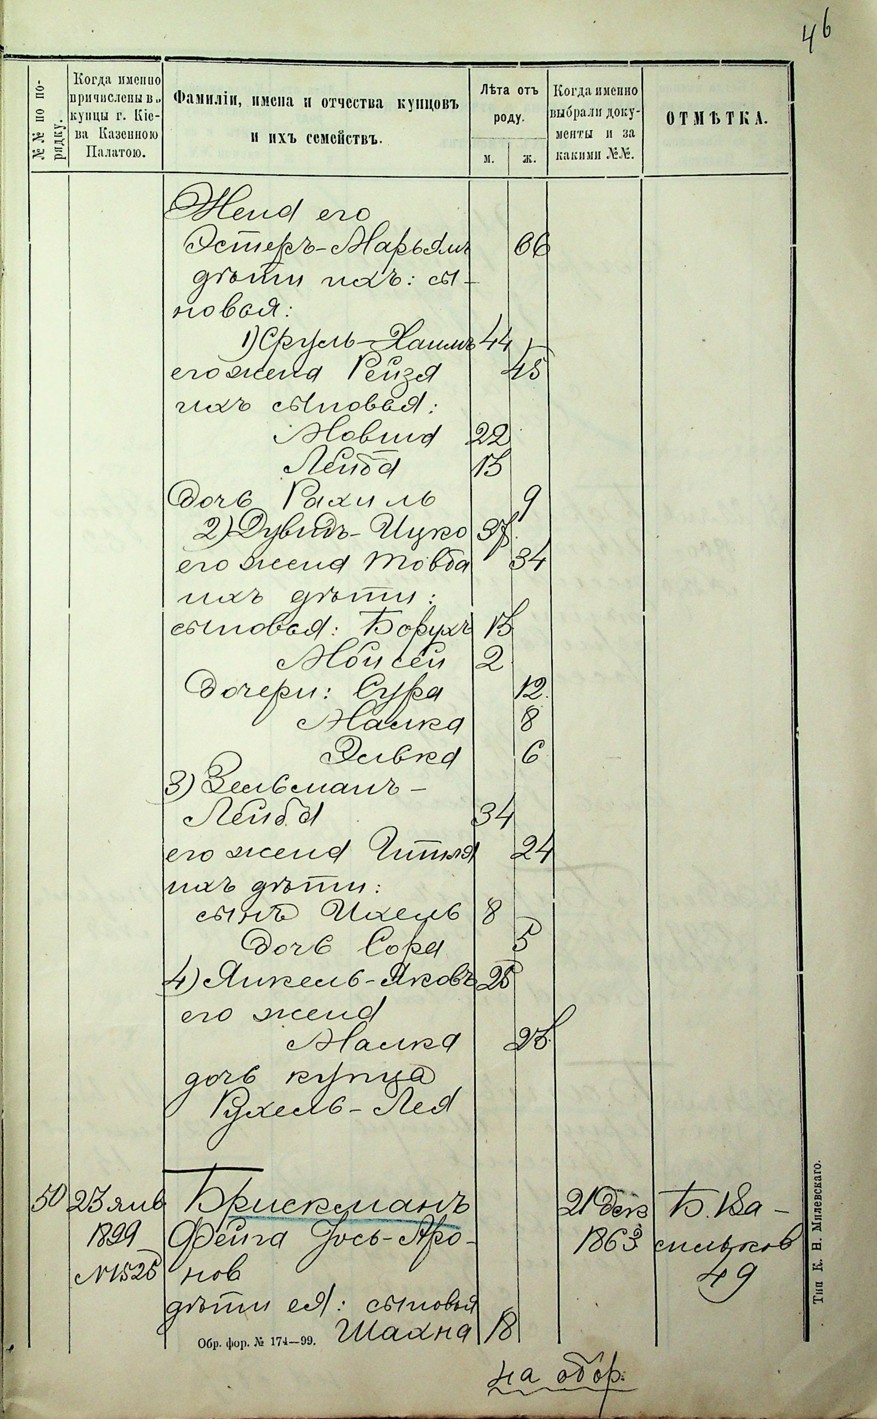 46
№№ по по-
рядку.
Когда именно
причислены въ
купцы г. Кіе-
ва Казенною
Палатою.
Фамиліи, имена и отчества купцовъ
и ихъ семействъ.
Лѣта отъ
роду.
м. ж.
Когда именно
выбрали доку-
менты и за
какими №№.
ОТМѢТКА.
Жена его
Эстеръ-Марьямъ 66
дѣти ихъ: сы-
новья:
1) Сруль-Хаимъ 44
его жена Рейзя 45
ихъ сыновья:
Мовша 22
Лейба 13
Дочь Рахиль 9
2) Дувидъ-Ицко 37
его жена Товба 34
ихъ дѣти:
сыновья: Борухъ 13
Мойсей 2
Дочери: Сура 12
Малка 8
Элька 6
3) Зельманъ-
Лейба 34
его жена Гитля 24
ихъ дѣти:
сынъ Ихель 8
Дочь Сора 5
4) Янкель-Яковъ 25
его жена
Малка 23
дочь купца
Рухель-Лея
50 23 янв Брискманъ 21 дек Б. Ва-
1899 Фейга Іось-Аро- 1863 сильков
№1525 нов 49
дѣти ея: сыновья
Шахна 18
Обр. фор. № 174—99.
на обор.
Тип К. Н. Милевскаго.